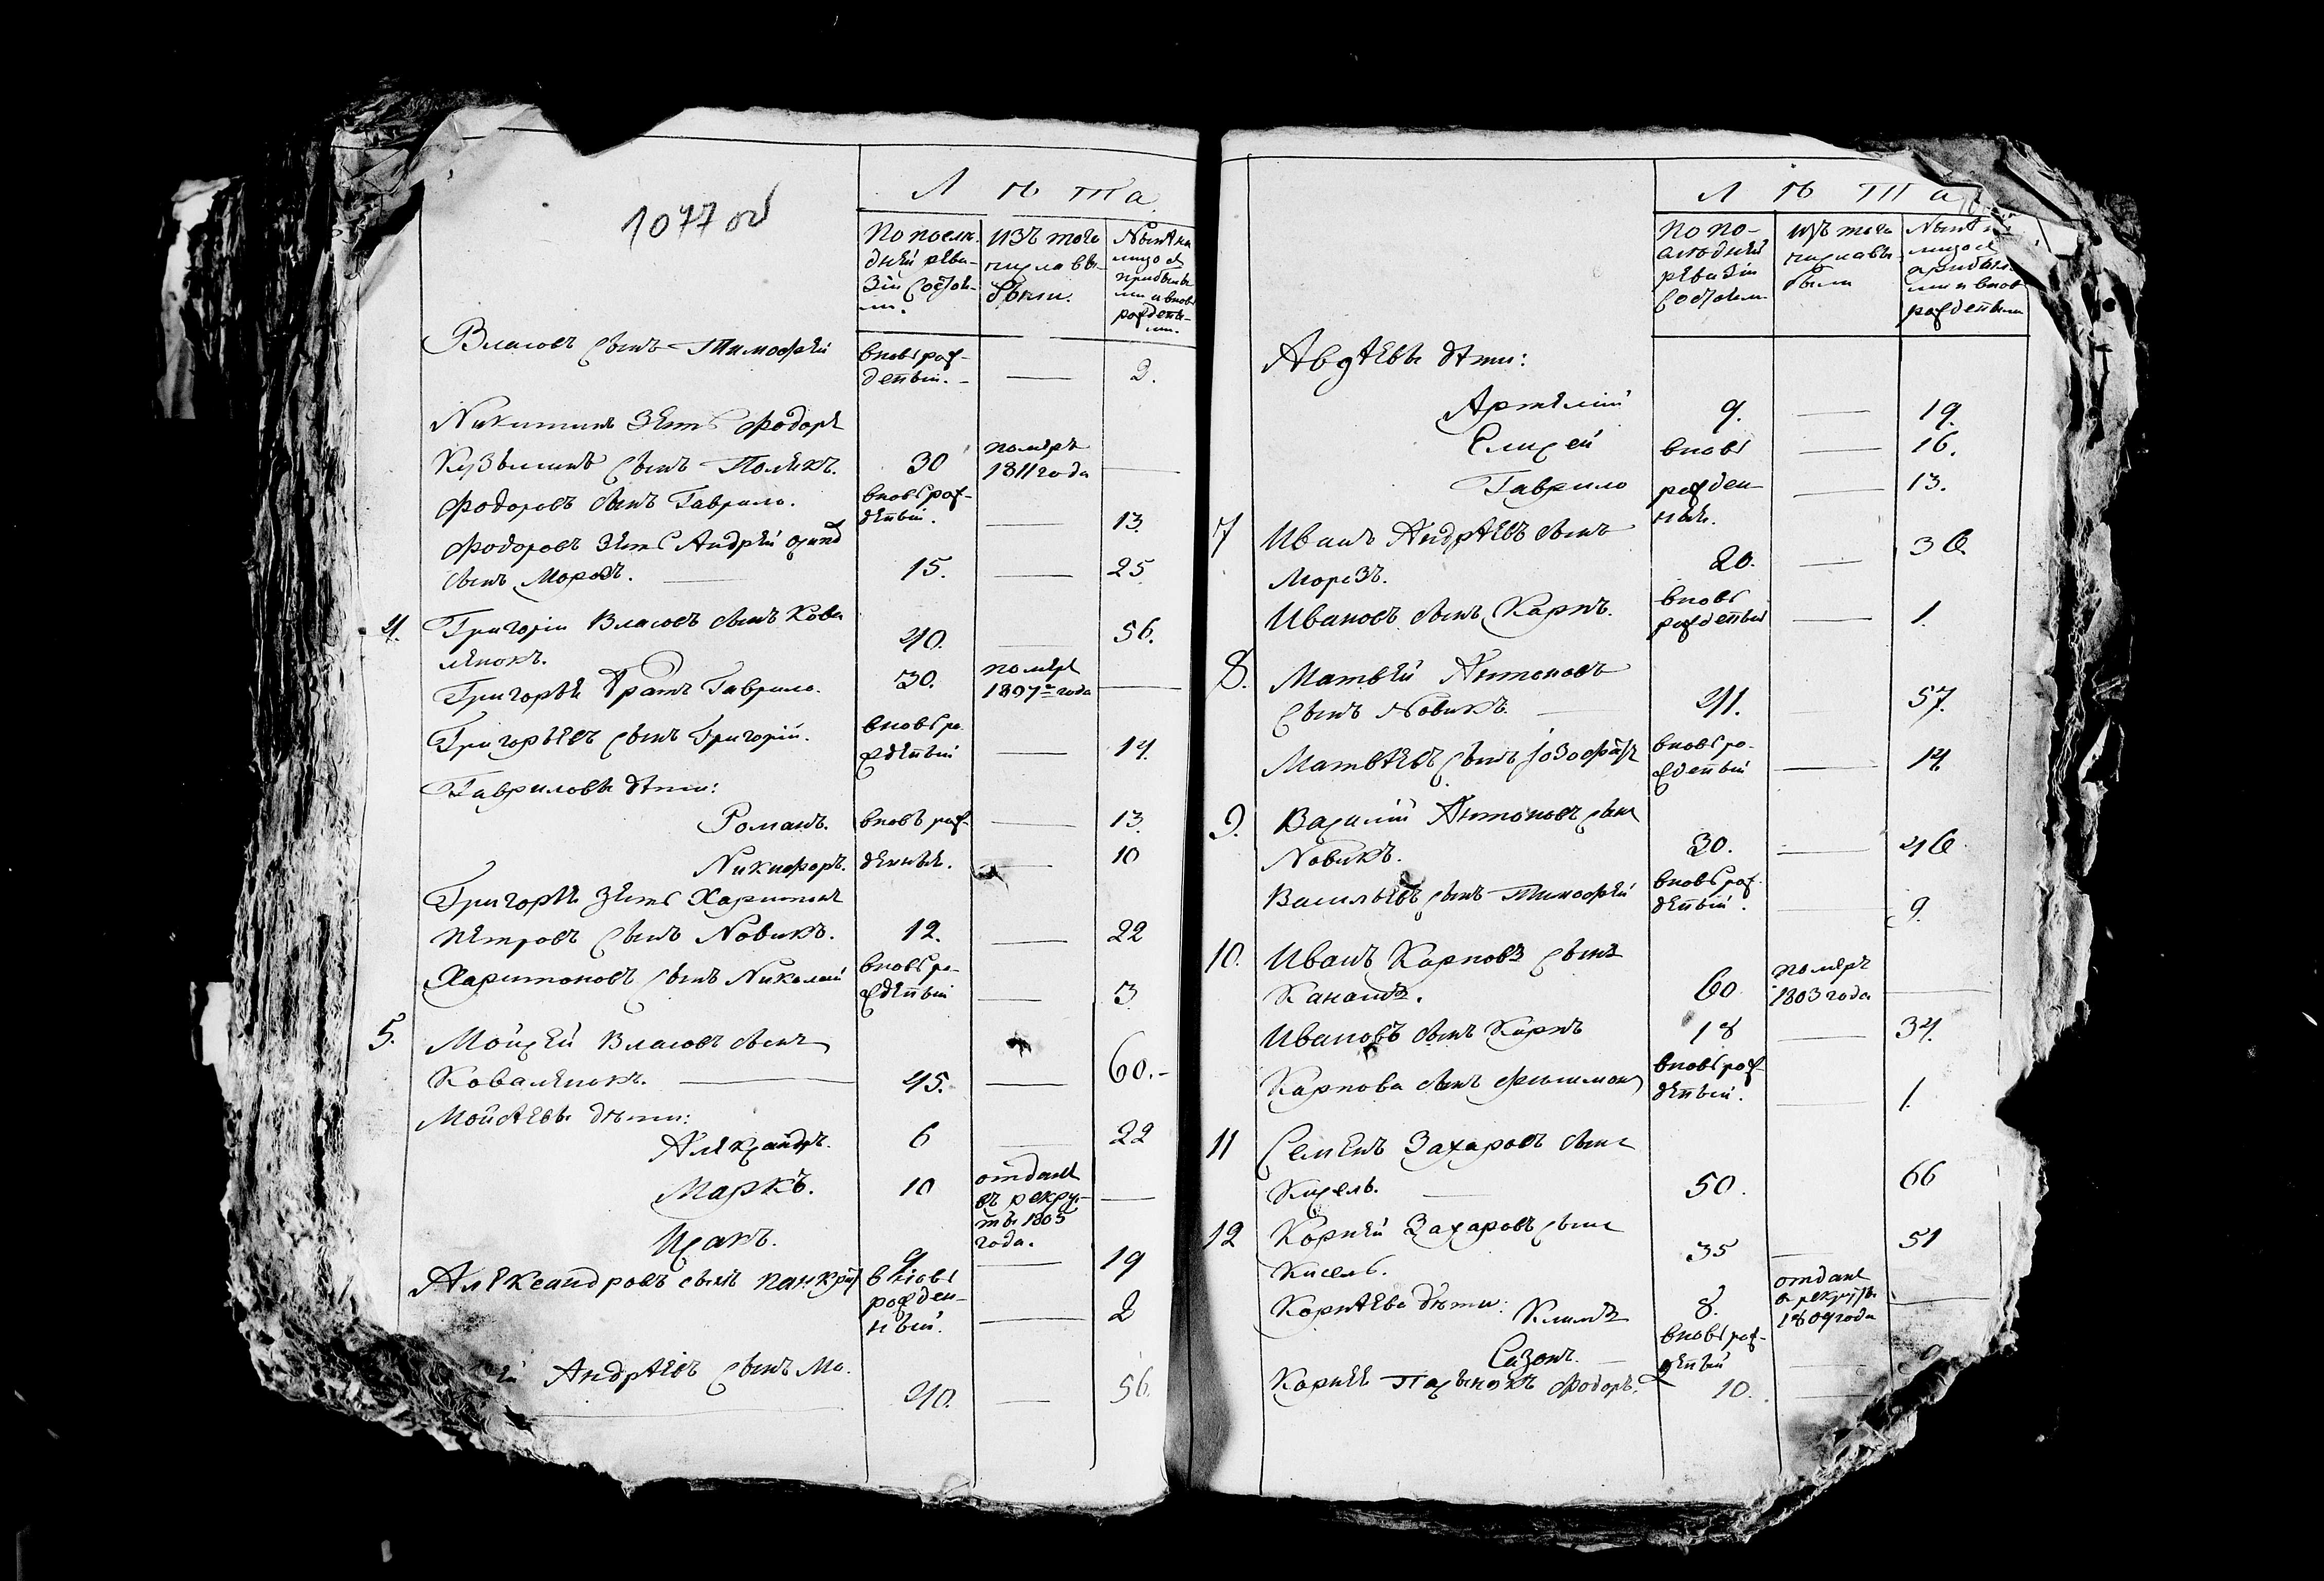 1077 об
Л ѣ та
По послѣ-
дней реви-
зіи состоя-
ли.
изъ того
числа вы-
были.
Нынѣ на
лицо съ
прибылы
ми и вновь
рожденны-
ми.
Власовъ сынъ Тимофей
вновь рож-
денный. — 2.
Никитинъ зять Федоръ
Кузьминъ сынъ Полякъ. 30 померъ
1811 года —
Федоровъ сынъ Гаврило. вновь рож-
денный. — 13.
Федоровъ зять Андрей
сынъ Морозъ. — 15. — 25
4. Григорій Власовъ сынъ Кова
ленокъ. 40. — 56.
Григорья братъ Гаврило. 30. померъ
1807го года —
Григорьевъ сынъ Григорій. вновь ро-
жденный — 14.
Гавриловы дѣти:
Романъ. вновь рож- — 13.
Никифоръ. денные. — 10
Григорья зять Харитонъ
Петровъ сынъ Новикъ. 12. — 22
Харитоновъ сынъ Николай вновь ро-
жденный — 3
5. Мойсей Власовъ сынъ
Коваленокъ. — 45. — 60.-
Мойсѣевы дѣти:
Александръ. 6 — 22
Маркъ. 10 отданъ
въ рекру-
ты 1805
года. —
Исакъ. 9 — 19
Александровъ сынъ Панкратъ вновь
рожден-
ный. — 2
й Андрѣевъ сынъ Мо.
40. — 56.
Л ѣ та
По по-
слѣдней
ревизіи
состояли
изъ того
числа вы-
были
Нынѣ на
лицо съ
прибылы-
ми и вновь
рожденными
Авдѣевы дѣти:
Артемій 9. — 19.
Елисей вновь — 16.
Гаврило рожден- — 13.
ные.
7 Иванъ Андрѣевъ сынъ
Морозъ. 20. — 36.
Ивановъ сынъ Карпъ. вновь
рожденный — 1.
8. Матвѣй Антоновъ
сынъ Новикъ. — 41. 57.
Матвѣевъ сынъ Іозофатъ вновь ро-
жденный — 14.
9. Василій Антоновъ сынъ
Новикъ. 30. — 46.
Васильевъ сынъ Тимофей вновь рож-
денный. — 9.
10. Иванъ Карповъ сынъ
60 померъ
1803 года —
Ивановъ сынъ Карпъ 18 — 34.
Карпова сынъ Филимонъ вновь рож-
денный. — 1.
11 Семенъ Захаровъ сынъ
Кисель. — 50. 66
12 Корней Захаровъ сынъ
Кисель. 35 — 51
Корнѣева дѣти: Климъ 8. отданъ
въ рекруты
1809 года —
Сазонъ. — вновь рож-
денный — 9
Корнея Пасынокъ Федоръ. 10. —